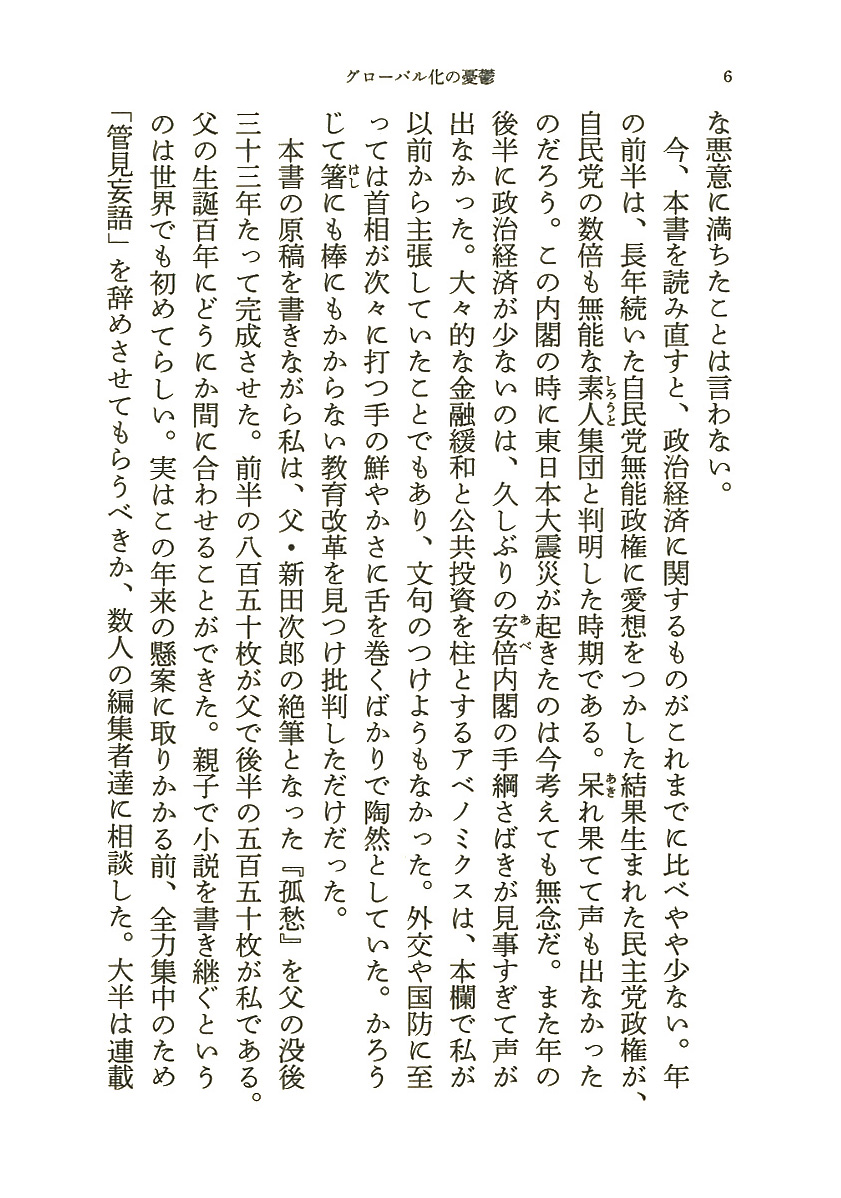 グローバル化の憂鬱
6
な悪意に満ちたことは言わない。
今、本書を読み直すと、政治経済に関するものがこれまでに比べやや少ない。年
の前半は、長年続いた自民党無能政権に愛想をつかした結果生まれた民主党政権が、
自民党の数倍も無能な素人しろうと集団と判明した時期である。呆あきれ果てて声も出なかった
のだろう。この内閣の時に東日本大震災が起きたのは今考えても無念だ。また年の
後半に政治経済が少ないのは、久しぶりの安倍あべ内閣の手綱さばきが見事すぎて声が
出なかった。大々的な金融緩和と公共投資を柱とするアベノミクスは、本欄で私が
以前から主張していたことでもあり、文句のつけようもなかった。外交や国防に至
っては首相が次々に打つ手の鮮やかさに舌を巻くばかりで陶然としていた。かろう
じて箸はしにも棒にもかからない教育改革を見つけ批判しただけだった。
本書の原稿を書きながら私は、父・新田次郎の絶筆となった『孤愁』を父の没後
三十三年たって完成させた。前半の八百五十枚が父で後半の五百五十枚が私である。
父の生誕百年にどうにか間に合わせることができた。親子で小説を書き継ぐという
のは世界でも初めてらしい。実はこの年来の懸案に取りかかる前、全力集中のため
「管見妄語」を辞めさせてもらうべきか、数人の編集者達に相談した。大半は連載